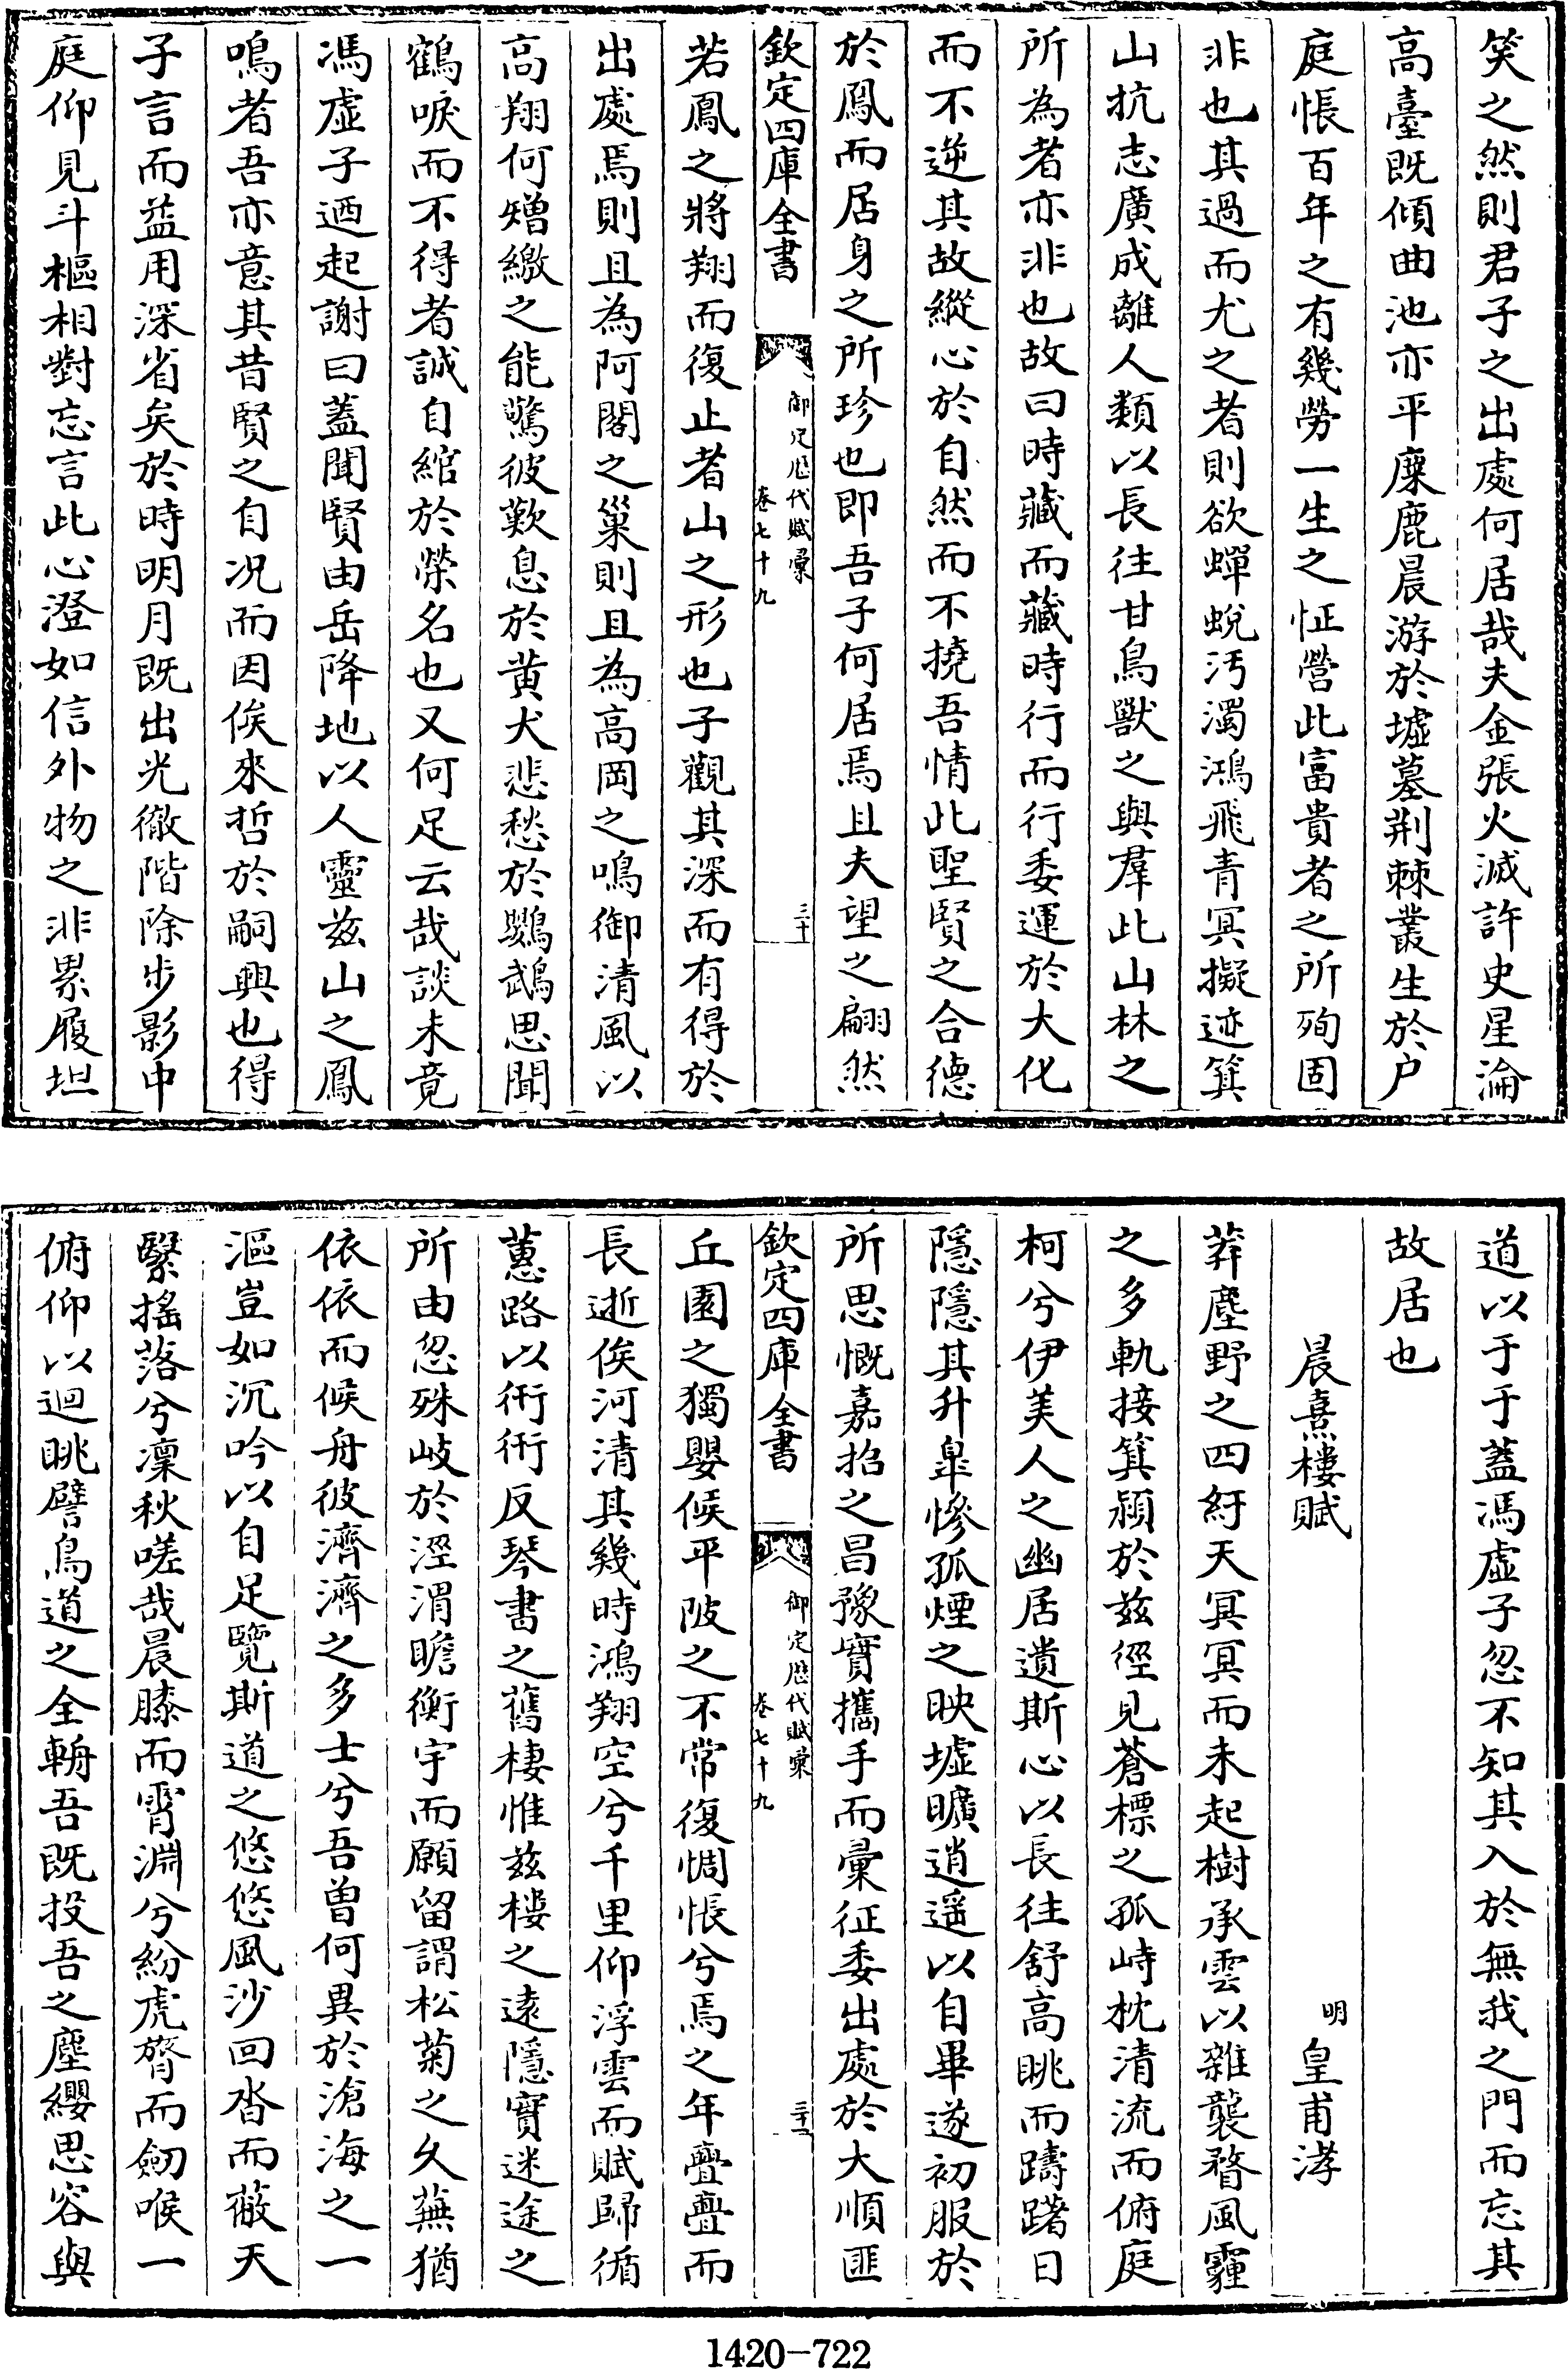 笑之然則君子之出處何居哉夫金張火滅許史星淪
高臺既傾曲池亦平麋鹿晨游於墟墓荆棘叢生於户
庭悵百年之有幾勞一生之怔營此富貴者之所殉固
非也其過而尤之者則欲蟬蛻汚濁鴻飛青冥擬迹箕
山抗志廣成離人類以長往甘鳥獸之與羣此山林之
所為者亦非也故曰時藏而藏時行而行委運於大化
而不逆其故縱心於自然而不撓吾情此聖賢之合德
於鳳而居身之所珍也即吾子何居焉且夫望之翩然
欽定四庫全書
御定歴代賦彙
卷七十九
三十
若鳳之將翔而復止者山之形也子觀其深而有得於
出處焉則且為阿閣之巢則且為高岡之鳴御清風以
高翔何矰繳之能驚彼歎息於黄犬悲愁於鸚鵡思聞
鶴唳而不得者誠自綰於榮名也又何足云哉談未竟
馮虚子迺起謝曰蓋聞賢由岳降地以人靈兹山之鳳
鳴者吾亦意其昔賢之自况而因俟來哲於嗣興也得
子言而益用深省矣於時明月既出光徹階除步影中
庭仰見斗樞相對忘言此心澄如信外物之非累履坦
道以于于蓋馮虚子忽不知其入於無我之門而忘其
故居也
晨熹樓賦
明
皇甫涍
莽塵野之四紆天冥冥而未起樹承雲以雜襲瞀風霾
之多軌接箕潁於兹徑見蒼標之孤峙枕清流而俯庭
柯兮伊美人之幽居遺斯心以長往舒高眺而躊躇日
隱隱其升臯慘孤煙之映墟曠逍遥以自畢遂初服於
所思慨嘉招之昌豫實攜手而彚征委出處於大順匪
欽定四庫全書
御定歴代賦彙
卷七十九
三十一
丘園之獨嬰候平陂之不常復惆悵兮焉之年亹亹而
長逝俟河清其幾時鴻翔空兮千里仰浮雲而賦歸循
蕙路以術術反琴書之舊棲惟兹樓之遠隱實迷途之
所由忽殊岐於涇渭瞻衡宇而願留謂松菊之久蕪猶
依依而候舟彼濟濟之多士兮吾曾何異於滄海之一
漚豈如沉吟以自足覽斯道之悠悠風沙回沓而蔽天
緊搖落兮凜秋嗟哉晨膝而霄淵兮紛虎膂而劒喉一
俯仰以迴眺譬鳥道之全輈吾既投吾之塵纓思容與
1420-722